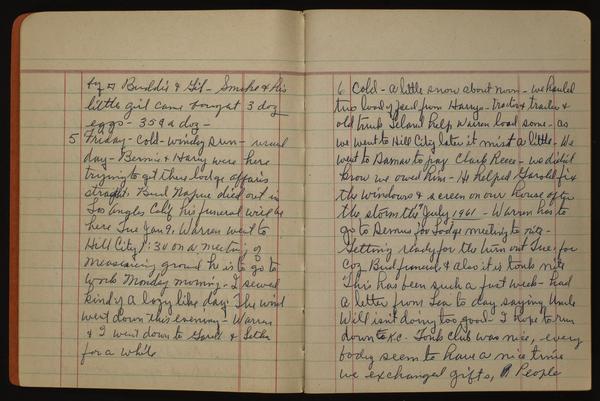 by Budd's & Gil - Smoke & his
little girl came bought 3 doz
eggs - 35¢ a doz -
5 Friday - Cold - windy sun - usual
day - Bernie & Harry were here
trying to get these lodge affairs
straight. Bud Napue died out in
Los Angles Calif his funeral will be
here Tue Jan 9. Warren went to
Hill City 1:30 on a meeting of
measuring ground he is to go to
work Monday morning - I sewed
kind of a lazy like day. The wind
went down this evening - Warren
& I went down to &
for a while
6 Cold - a little snow about noon - we hauled
two loads of feed from Harrys - tractor & trailer &
old truck Leland help Warren load some - as
we went to Hill City later it mist a little - We
went to Damar to pay Clark Reece - we didn't
know we owed him - He helped Harold fix
the windows & screen on our house after
the storm the July 1961 - Warren has to
go to for Lodge meeting to nite -
Getting ready for the turn out Tue for
Coz Bud funeral & also it is Tonk nite
This has been such a fast week - had
a letter from Lea to day saying Uncle
Will isn't doing too good - I hope to run
down to K.C. - Tonk Club was nice, every
body seem to have a nice time
we exchanged gifts, People